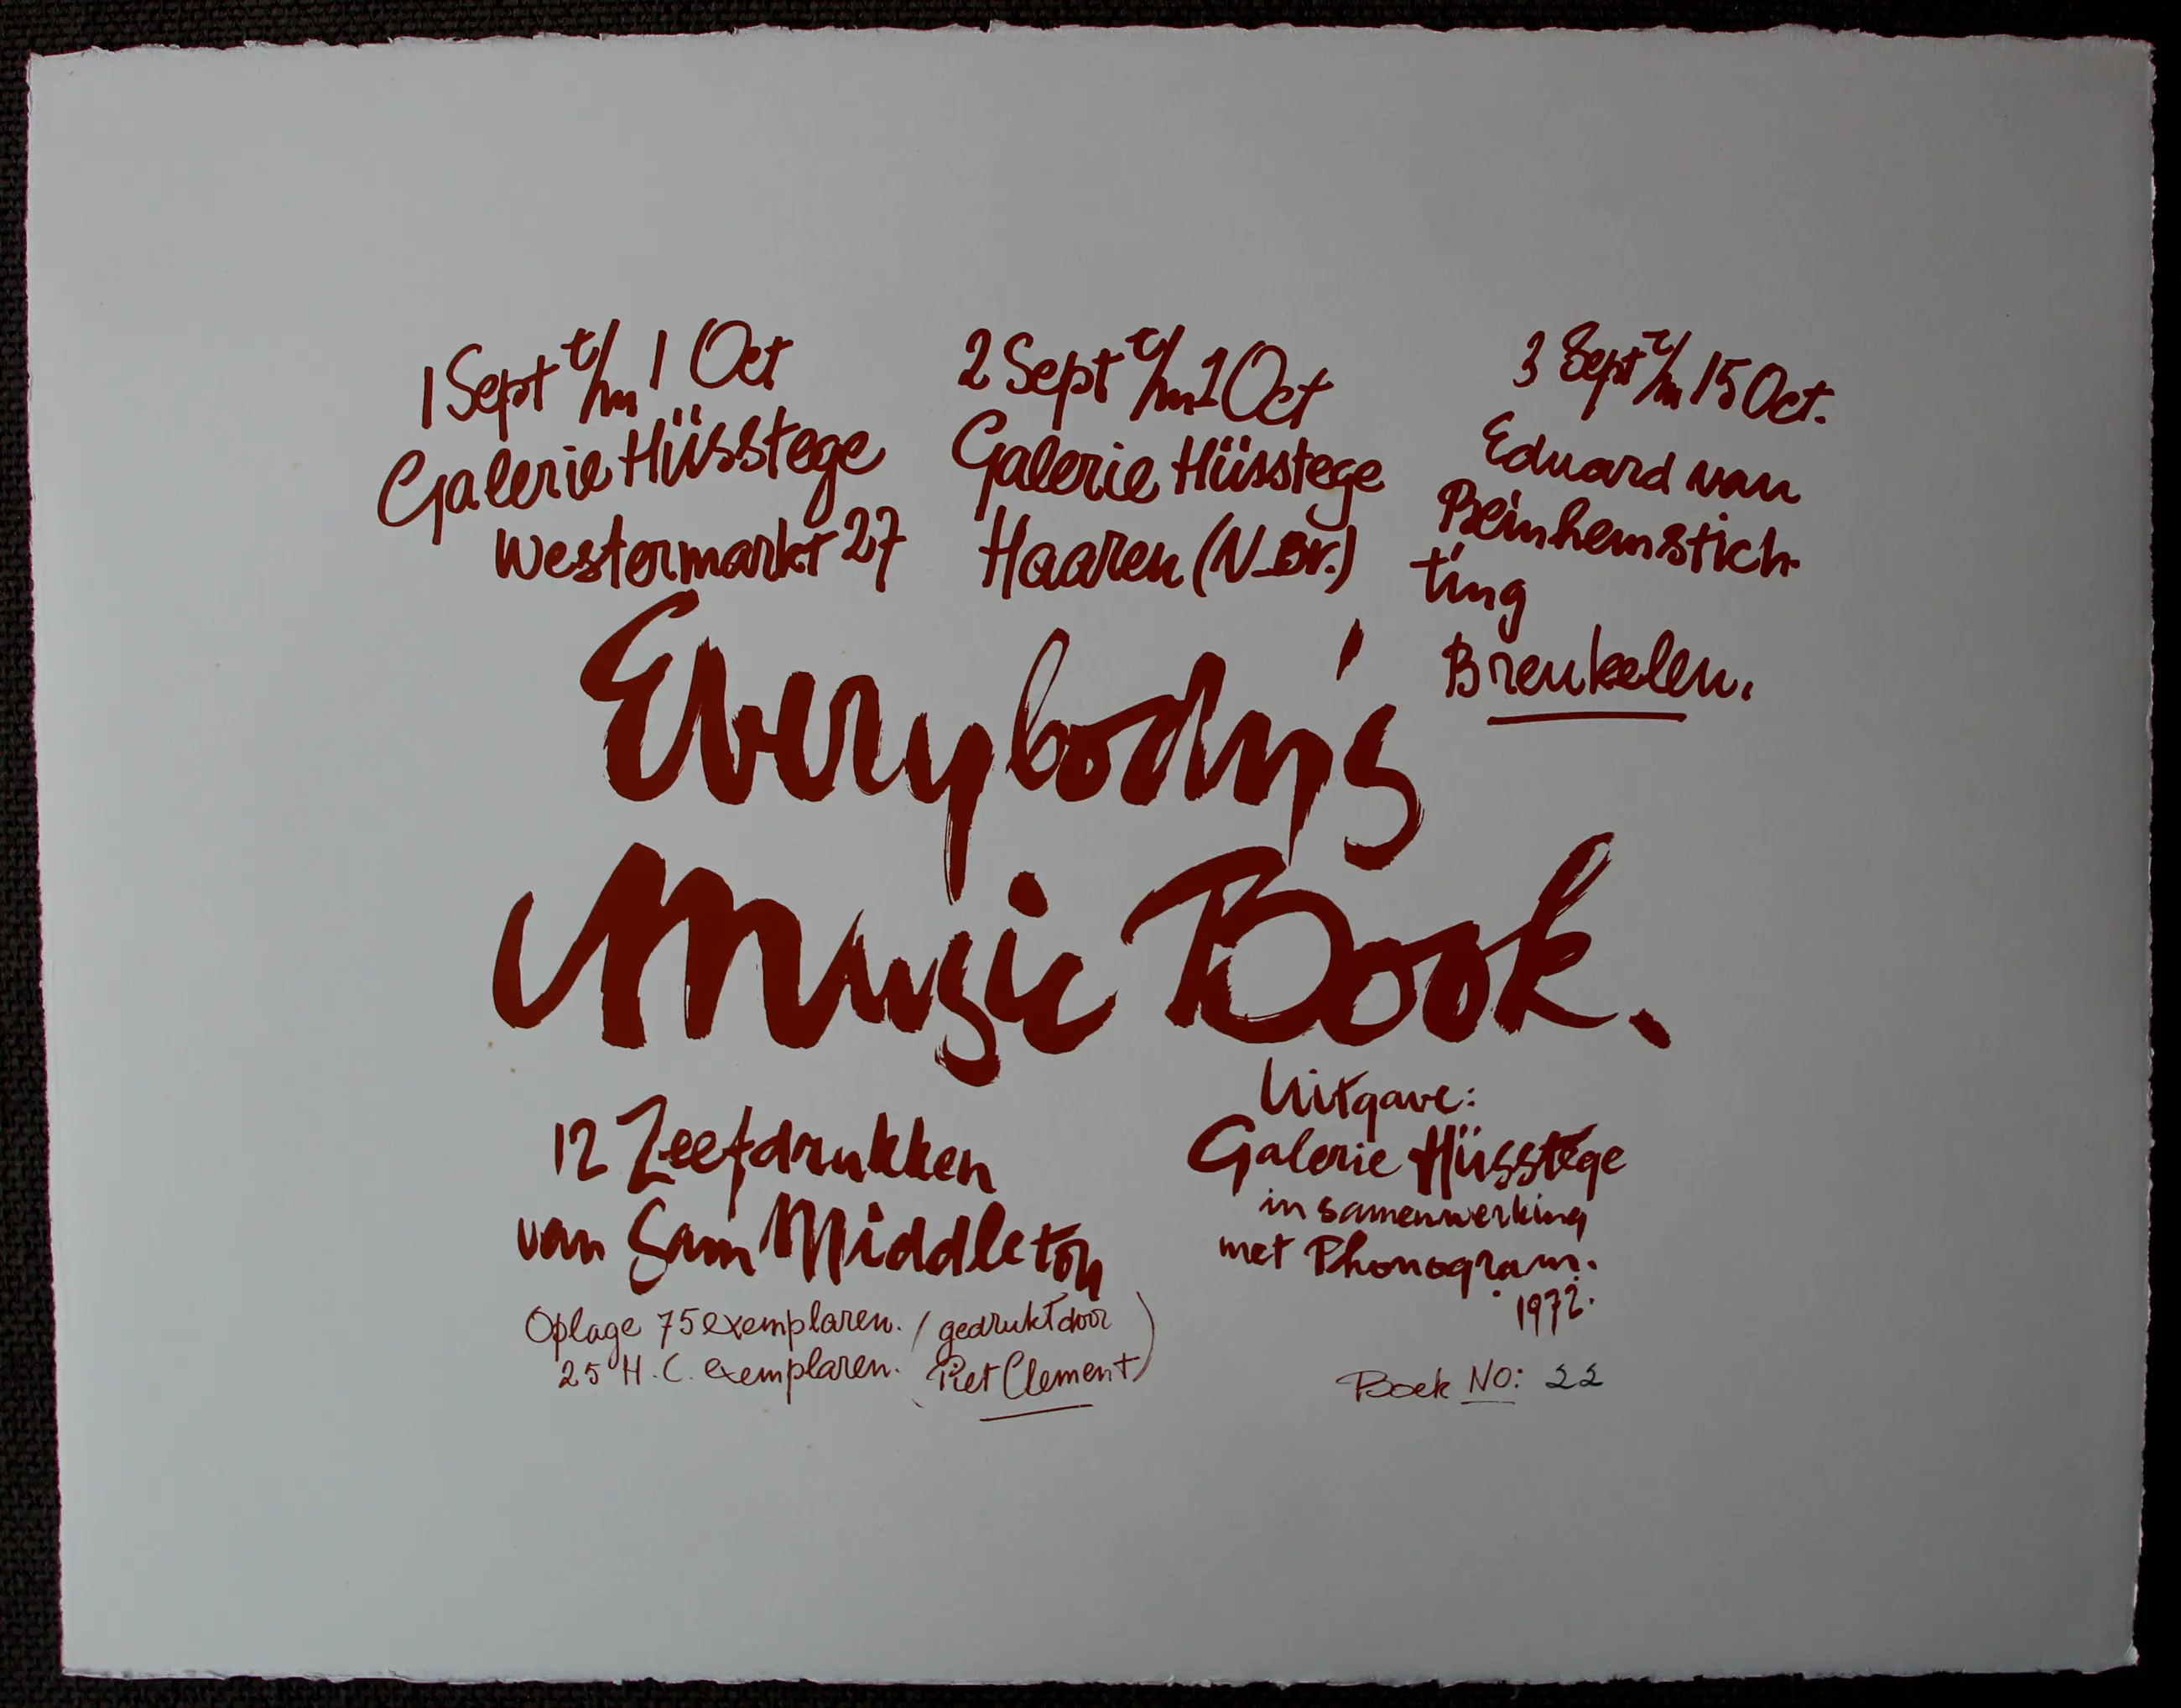 1 Sept t/m 1 Oct
Galerie Hüsstege
Westermarkt 27
2 Sept t/m 1 Oct
Galerie Hüsstege
Haaren (N_Br.)
3 Sept t/m 15 Oct.
Eduard van
Beinhemstich-
ting
Breukelen.
Everybody's
Music Book.
12 Zeefdrukken
van Sam Middleton
Oplage 75 exemplaren. (gedrukt door
25 H.C. exemplaren. Piet Clement)
Uitgave:
Galerie Hüsstege
in samenwerking
met Phonogram.
1972.
Boek NO: 22